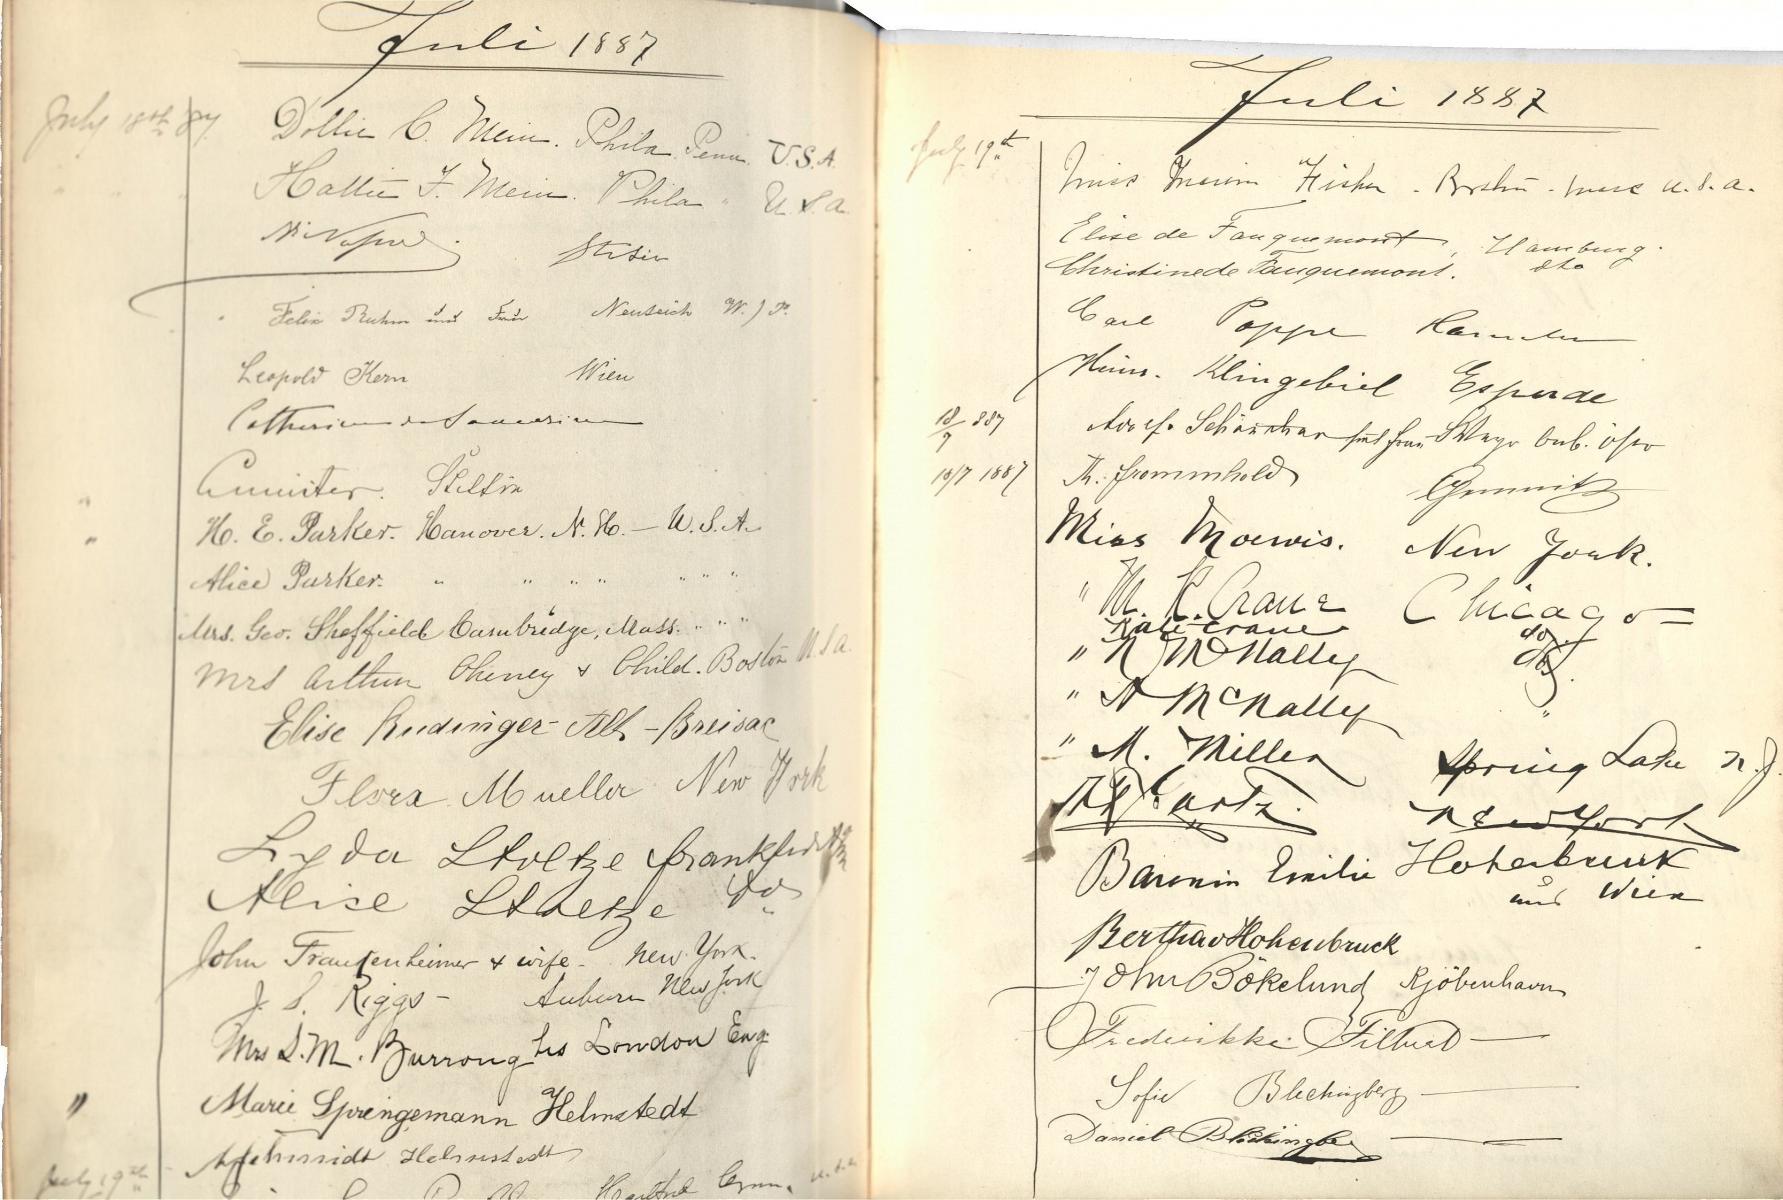 Juli 1887
July 18th 87 Dollie C. Mein. Phila. Penn. U.S.A.
" " " Hattie F. Mein. Phila " U.S.A.
Stettin
Felix Ruhm und Frau Neuteich W./P.
Leopold Kern Wien
Catherine de
Stettin
" H. E. Parker. Hanover. N. H. — U. S. A.
" Alice Parker. " " " " " " "
Mrs. Geo. Sheffield Cambridge, Mass. " " "
Mrs Arthur Cheney & Child. Boston U.S.A.
Elise Rudinger - Alt - Breisac
Flora Mueller New York
Lyda Stoltze Frankfurt
Alice Stoltze do
John Frankenheimer & wife - New York.
J. S. Riggs - Auburn New York
Mrs S. M. Burroughs London Eng
" Marie Springemann Helmstedt
A Schmidt Helmstedt
July 19th
Juli 1887
July 19th Miss Fisher - Boston - Mass U.S.A.
Elise de Fauquemont, Hamburg.
Christine de Fauquemont. dto
Carl Poppe Hameln
Heinr. Klingebiel Esperde
18/7 887 Adolf Frau Steyr
18/7 1887 Th. Frommhold Chemnitz
Miss Moewis. New York.
" M. K. Crane Chicago
Kate Crane do
" McNally do
" A McNally "
" M. Miller Spring Lake N. J.
New York
Baronin Emilie Hohenbruck
und Wien
Bertha v Hohenbruck
John Bökelund Kjöbenhavn
Frederikke Filtved —
Sofie Blechingberg —
Daniel Blechingberg —